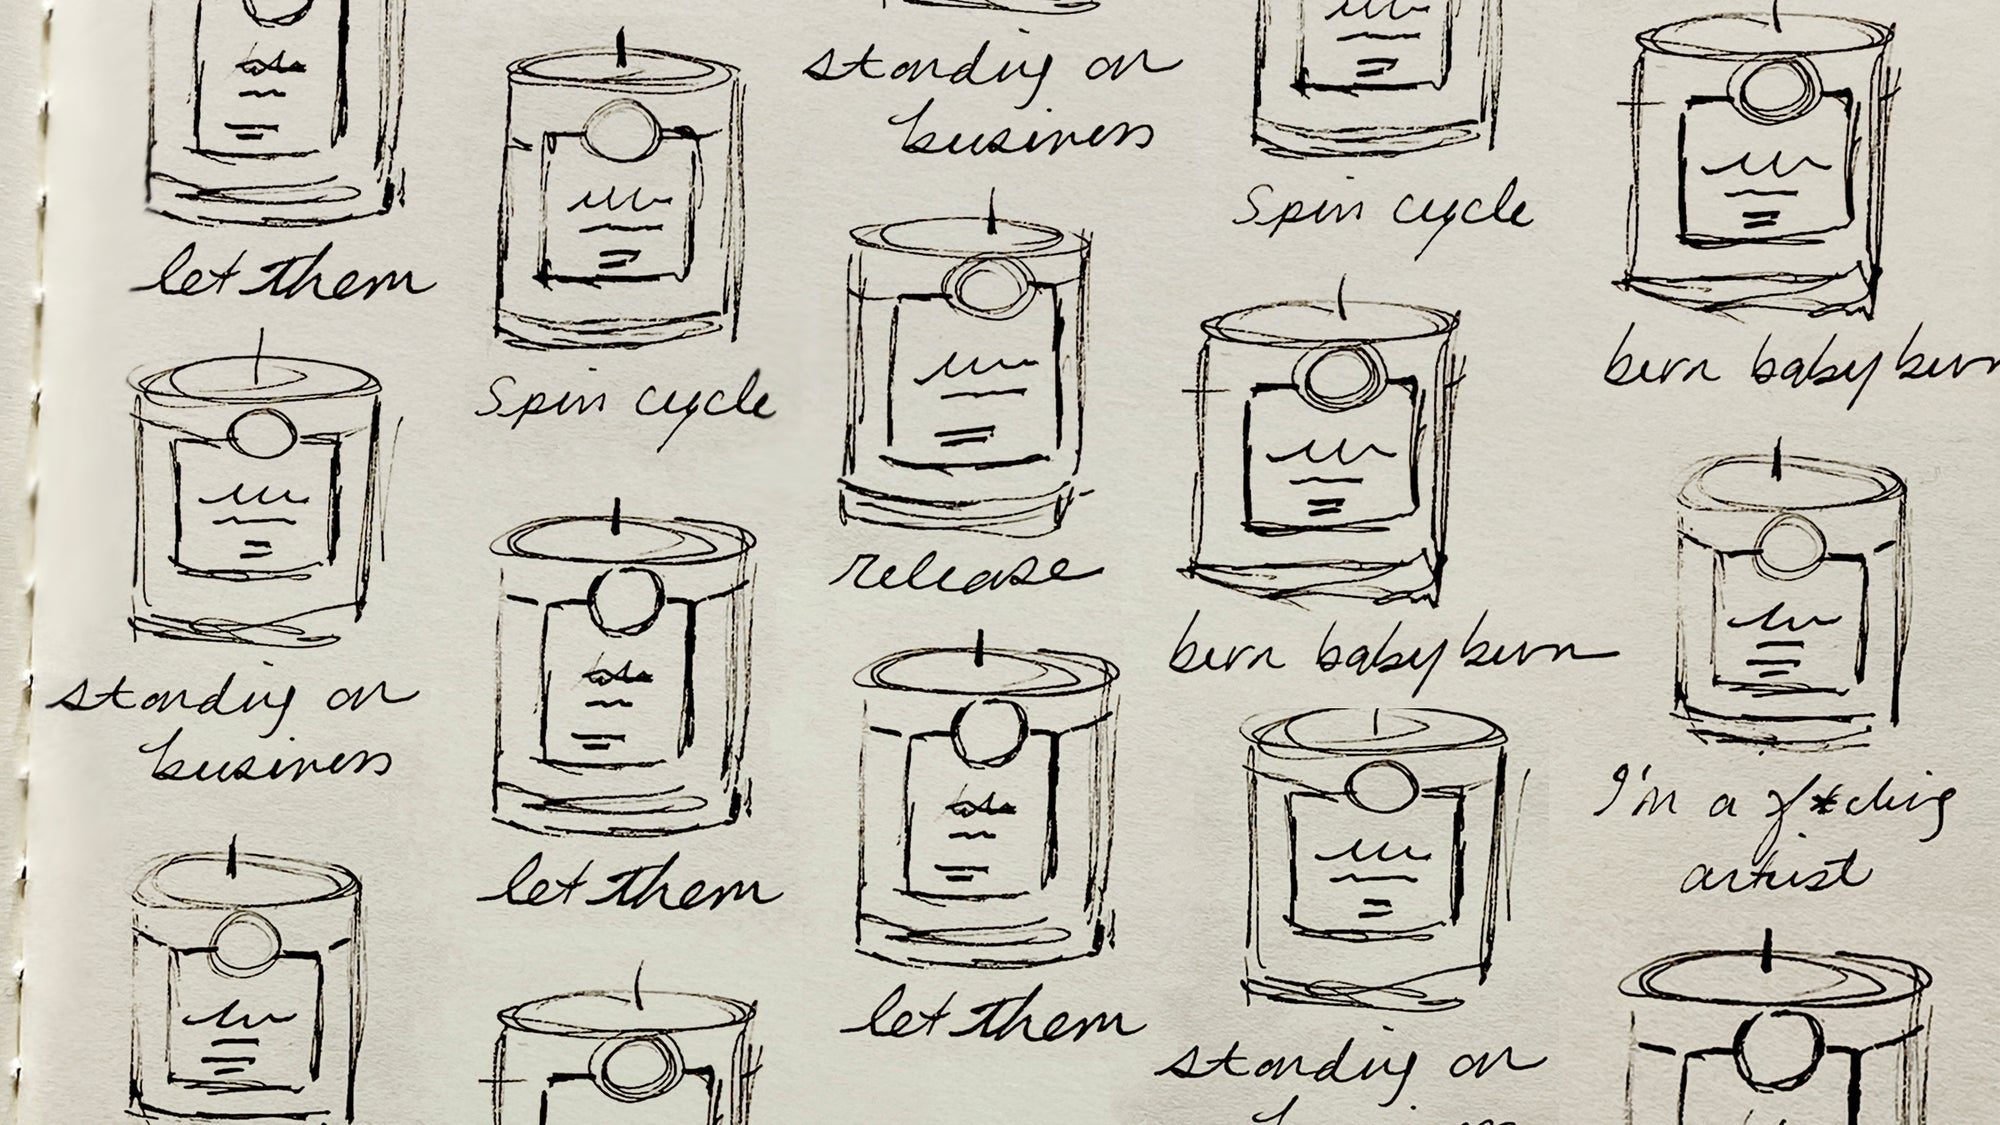 let them
standing on
business
Spin cycle
let them
standing on
business
Spin cycle
release
let them
burn baby burn
standing on
burn baby burn
I'm a f*cking
artist